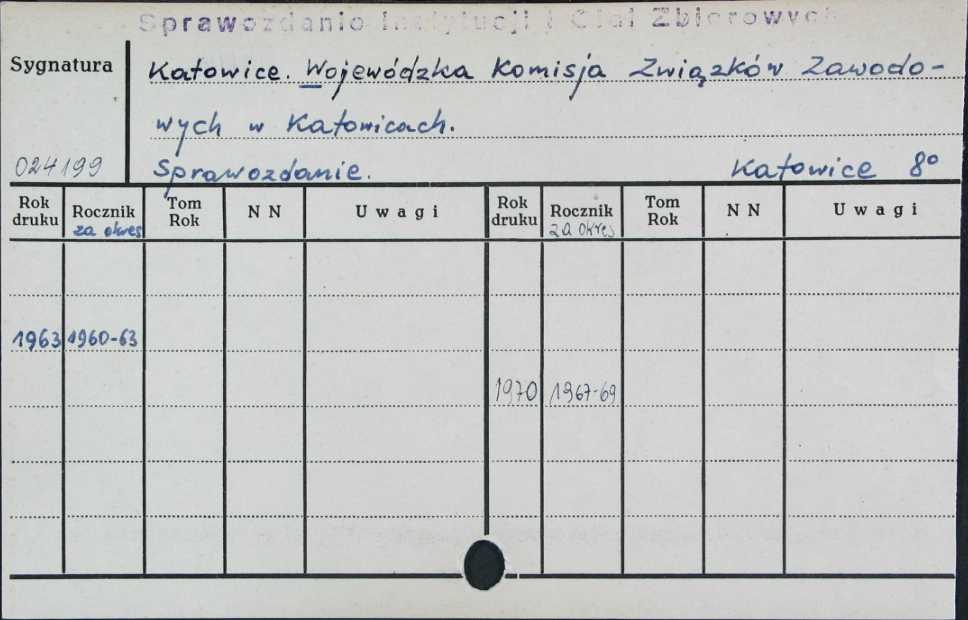 Sprawozdanio Instytucji i Ciał Zbiorowych
Sygnatura
Katowice. Wojewódzka Komisja Związków Zawodo-
wych w Katowicach.
024199
Sprawozdanie. Katowice 8°
Rok druku Rocznik za okres Tom Rok N N U w a g i Rok druku Rocznik za okres Tom Rok N N U w a g i
1963 1960-63
1970 1967-69